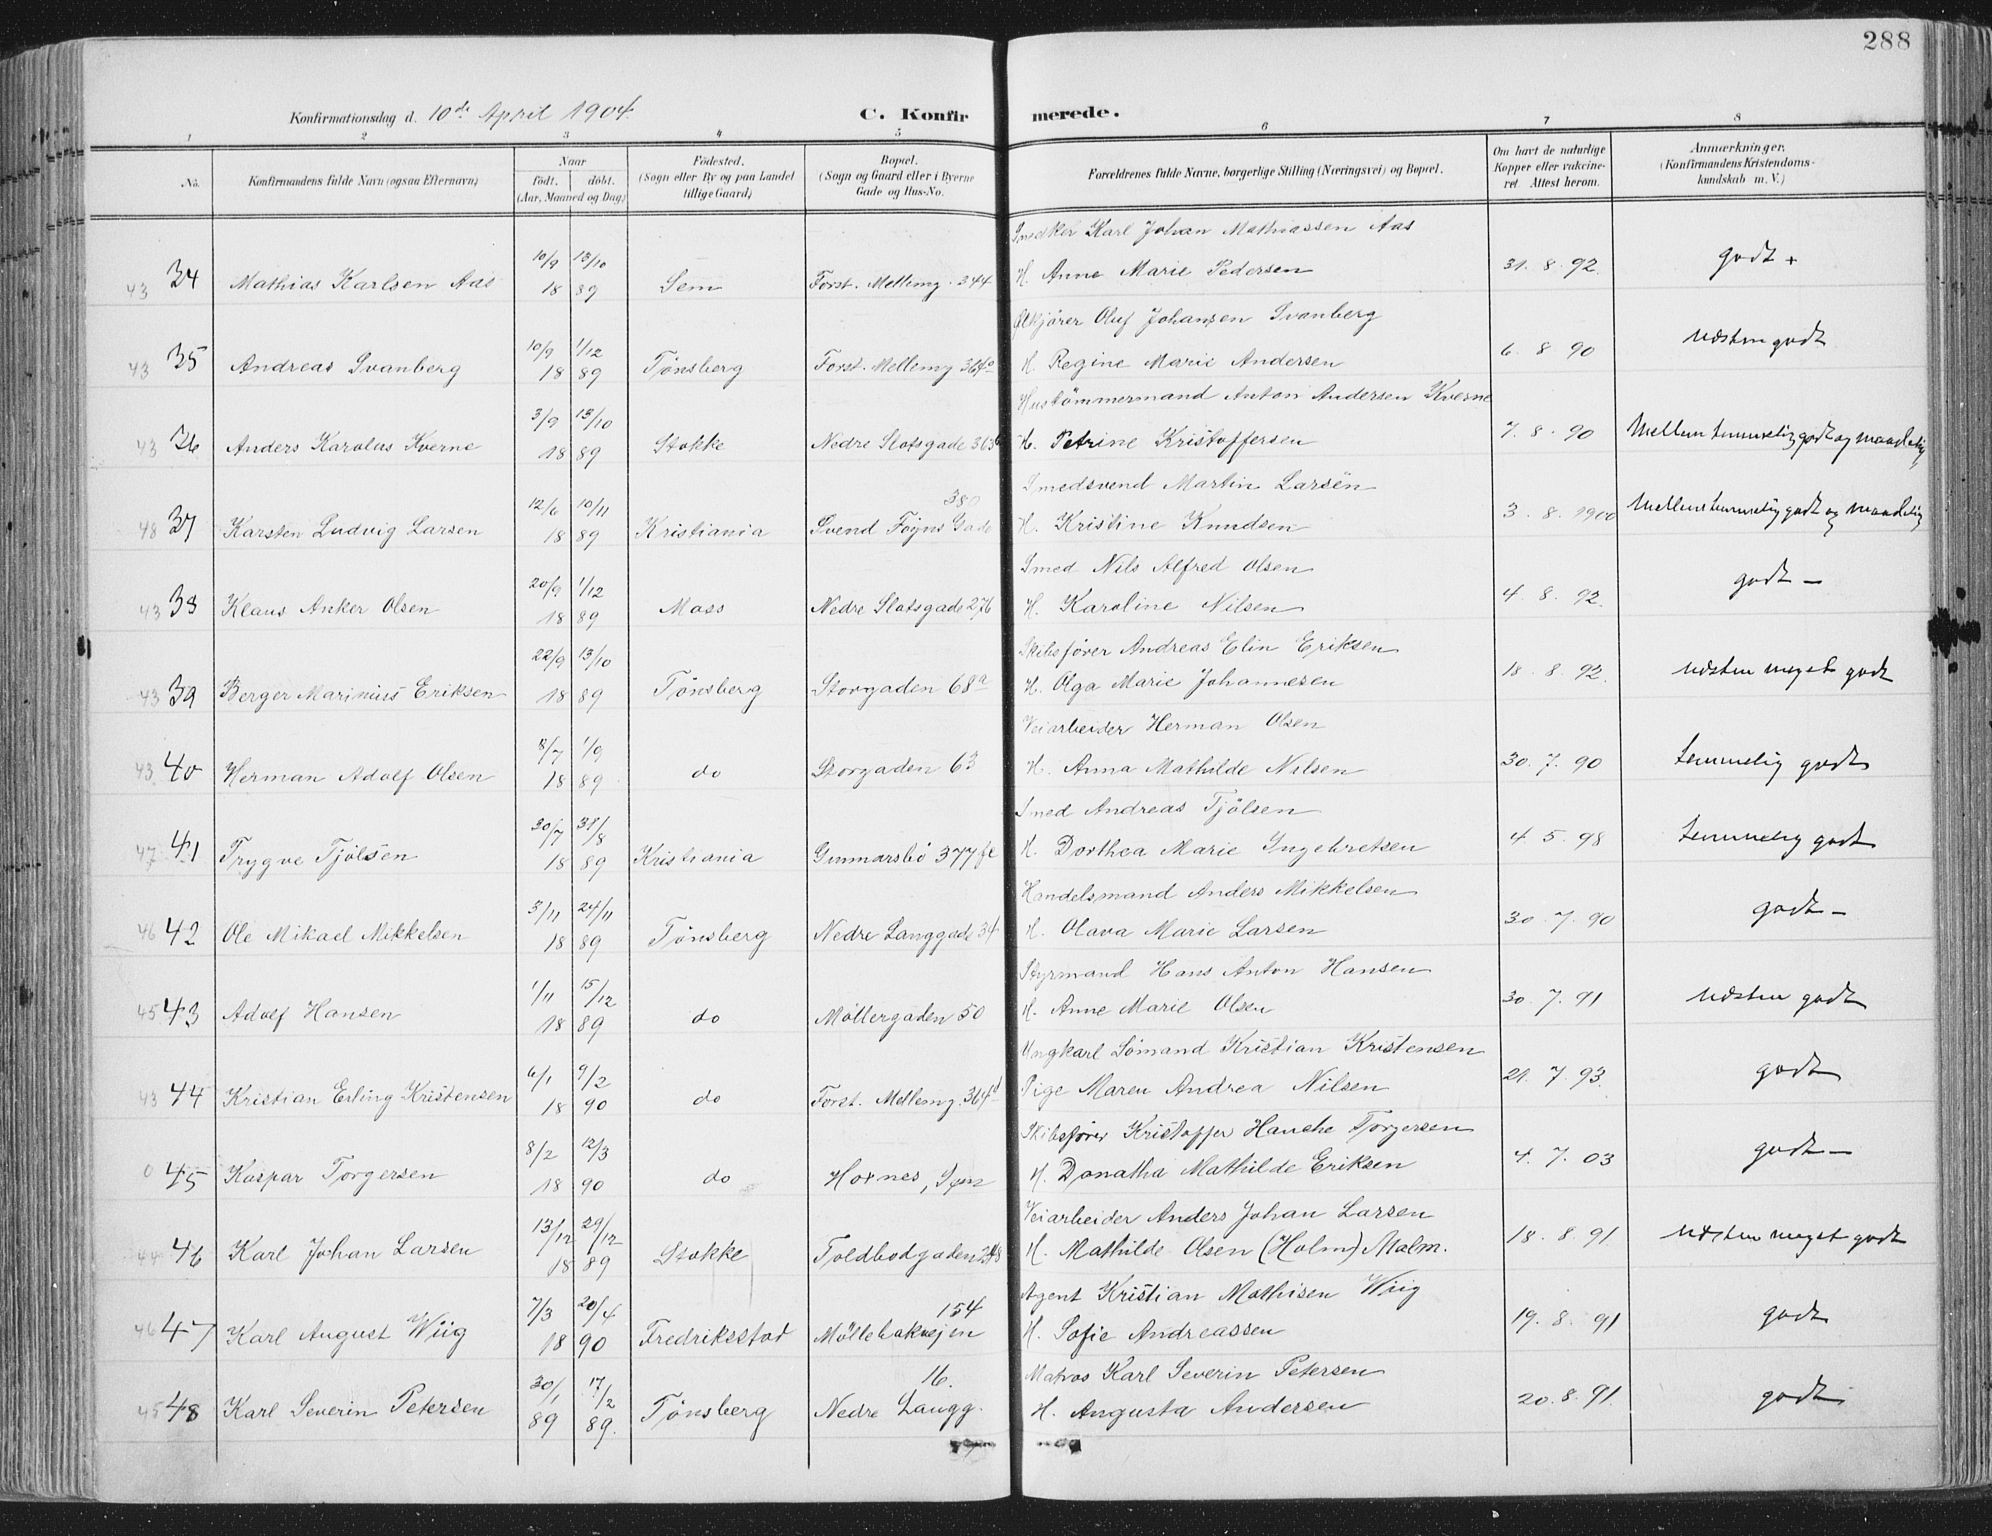 288
Konfirmationsdag d. 10de April 1904. C. Konfirmerede.
1 2 3 4 5 6 7 8
No. Konfirmandens fulde Navn (ogsaa Efternavn) Naar født. døbt. (Aar, Maaned og Dag) Fødested. (Sogn eller By og paa Landet tillige Gaard) Bopæl. (Sogn og Gaard eller i Byerne Gade og Hus-No. Forældrenes fulde Navne, borgerlige Stilling (Næringsvei) og Bopæl. Om havt de naturlige Kopper eller vakcineret. Attest herom. Anmærkninger. (Konfirmandens Kristendomskundskab m. V.)
Snedker Karl Johan Mathiassen Aas
43 34 Mathias Karlsen Aas 10/9 1889 13/10 89 Sem Forst. Mellemg. 344 H. Anne Marie Pedersen 31. 8. 92. godt +
Ølkjører Oluf Johansen Svanberg
43 35 Andreas Svanberg 10/9 1889 1/12 89 Tønsberg Forst. Mellemg 364a H. Regine Marie Andersen 6. 8. 90 næsten godt
Hustømmermand Anton Andersen Kverne
43 36 Anders Karolus Kverne 3/9 1889 13/10 89 Stokke Nedre Slotsgade 363 H. Petrine Kristoffersen 7. 8. 90 Mellem temmelig godt og maadelig
Smedsvend Martin Larsen
48 37 Karsten Ludvig Larsen 12/6 1889 10/11 89 Kristiania Svend Føyns Gade 380 H. Kristine Knudsen 3. 8. 1900 Mellem temmelig godt og maadelig
Smed Nils Alfred Olsen
43 38 Klaus Anker Olsen 20/9 1889 1/12 89 Moss Nedre Slotsgade 276 H. Karoline Nilsen 4. 8. 92. godt –
Skibsfører Andreas Elin Eriksen
43 39 Berger Marinius Eriksen 22/9 1889 13/10 89 Tønsberg Storgaden 68a H. Olga Marie Johannesen 18. 8. 92. næsten meget godt
Veiarbeider Herman Olsen
43 40 Herman Adolf Olsen 8/7 1889 1/9 89 do Storgaden 63 H. Anna Mathilde Nilsen 30. 7. 90 temmelig godt
Smed Andreas Tjølsen
47 41 Trygve Tjølsen 30/7 1889 31/8 89 Kristiania Gunnarsbø 377 H. Dorthea Marie Ingebretsen 4. 5. 98 temmelig godt
Handelsmand Anders Mikkelsen
46 42 Ole Mikael Mikkelsen 3/11 1889 24/11 89 Tønsberg Nedre Langgade 34 H. Olava Marie Larsen 30. 7. 90 godt –
Styrmand Hans Anton Hansen
45 43 Adolf Hansen 1/11 1889 15/12 89 do Møllergaden 50 H. Anne Marie Olsen 30. 7. 91 næsten godt
Ungkarl Sømand Kristian Kristensen
43 44 Kristian Erling Kristensen 6/1 1890 9/2 90 do Forst. Mellemg. 364d Pige Maren Andrea Nilsen 21. 7. 93. godt
Skibsfører Kristoffer Hanche Torgersen
0 45 Kaspar Torgersen 8/2 1890 12/3 90 do Hoxnes, Sem H. Donatha Mathilde Eriksen 4. 7. 03 godt –
Veiarbeider Anders Johan Larsen
44 46 Karl Johan Larsen 13/12 1889 29/12 89 Stokke Toldbodgaden H. Mathilde Olsen (Holm) Malm. 18. 8. 91 næsten meget godt
Agent Kristian Mathisen Wiig
46 47 Karl August Wiig 7/3 1890 20/4 90 Fredriksstad Møllebakvejen 154 H. Sofie Andreassen 19. 8. 91 godt
Matros Karl Severin Petersen
45 48 Karl Severin Petersen 30/1 89 17/2 89. Tønsberg Nedre Langg. 16. H. Augusta Andersen 20. 8. 91. godt